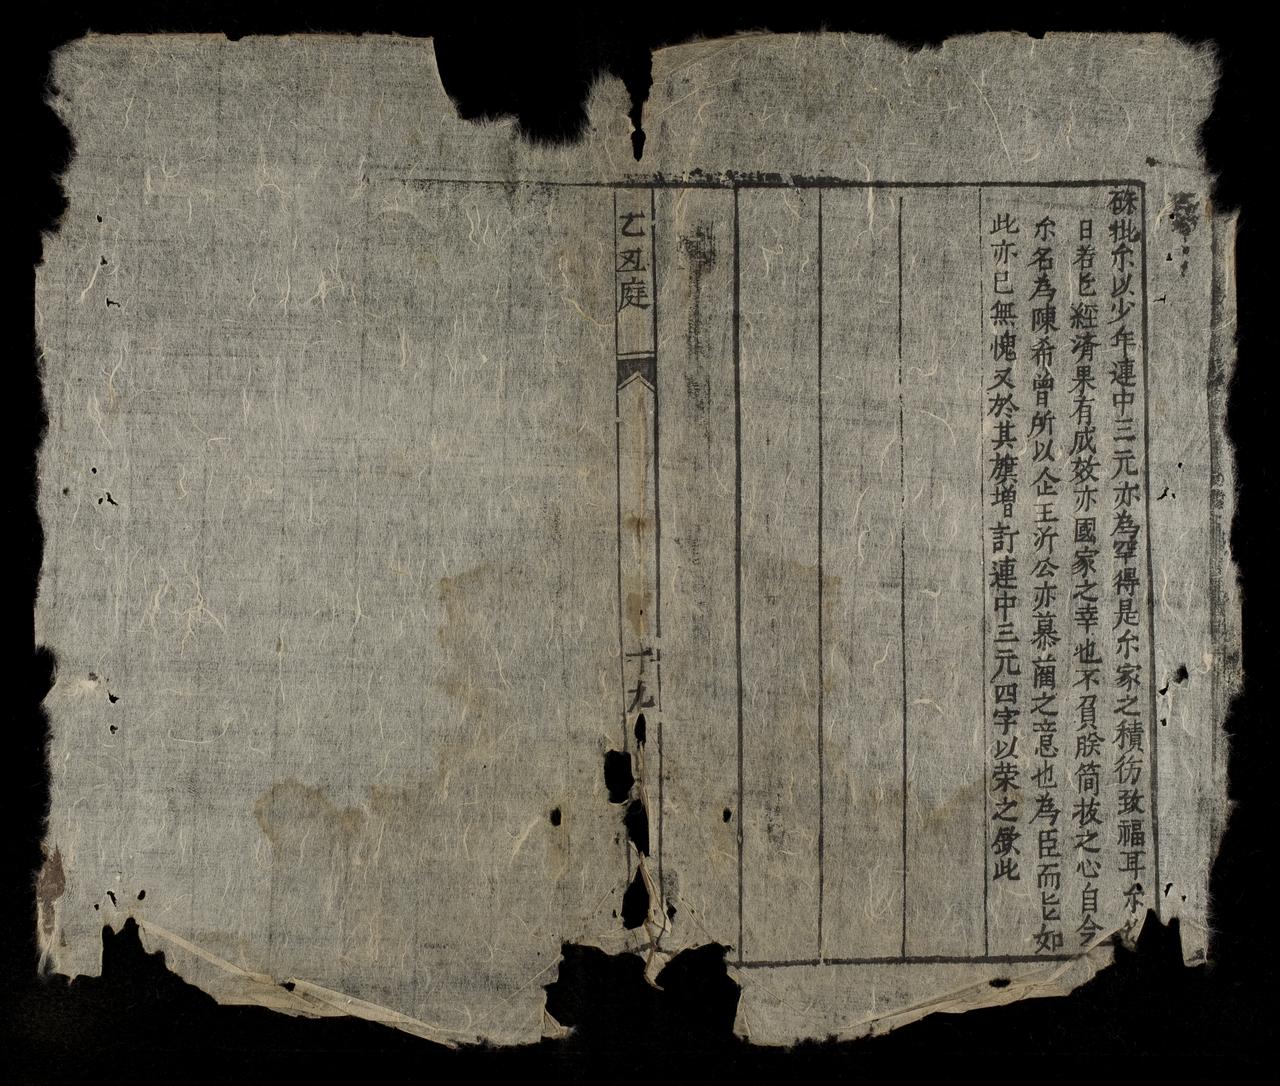 硃批尒以少年連中三元亦為罕得是尒家之積彷致福耳尒
日若㠯經濟果有成效亦國家之幸也不負朕简抜之心自今
尒名為陳希曾所以企王沂公亦慕藺之意也為臣而㠯如
此亦巳無愧又於其旗増訂連中三元四字以荣之欽此
乙丑庭
十九